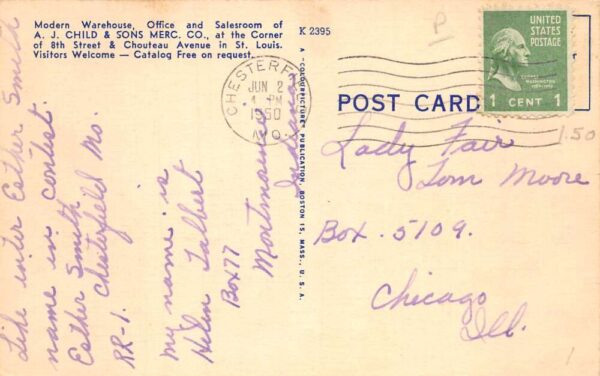 Modern Warehouse, Office and Salesroom of
A. J. CHILD & SONS MERC. CO., at the Corner
of 8th Street & Chouteau Avenue in St. Louis.
Visitors Welcome — Catalog Free on request.
K 2395
A "COLORPICTURE" PUBLICATION, BOSTON 15, MASS., U. S. A.
CHESTERFI
JUN 2
4 PM
1950
MO.
P
UNITED
STATES
POSTAGE
1 CENT 1
POST CARD
1.50
Lady Fair
Tom Moore
Box. 5109.
Chicago
Ill.
Like enter Esther Smith
name in contest.
Esther Smith
RR-1. Chesterfield Mo.
my name is
Helen Talbert
Box 77
Indiana
1